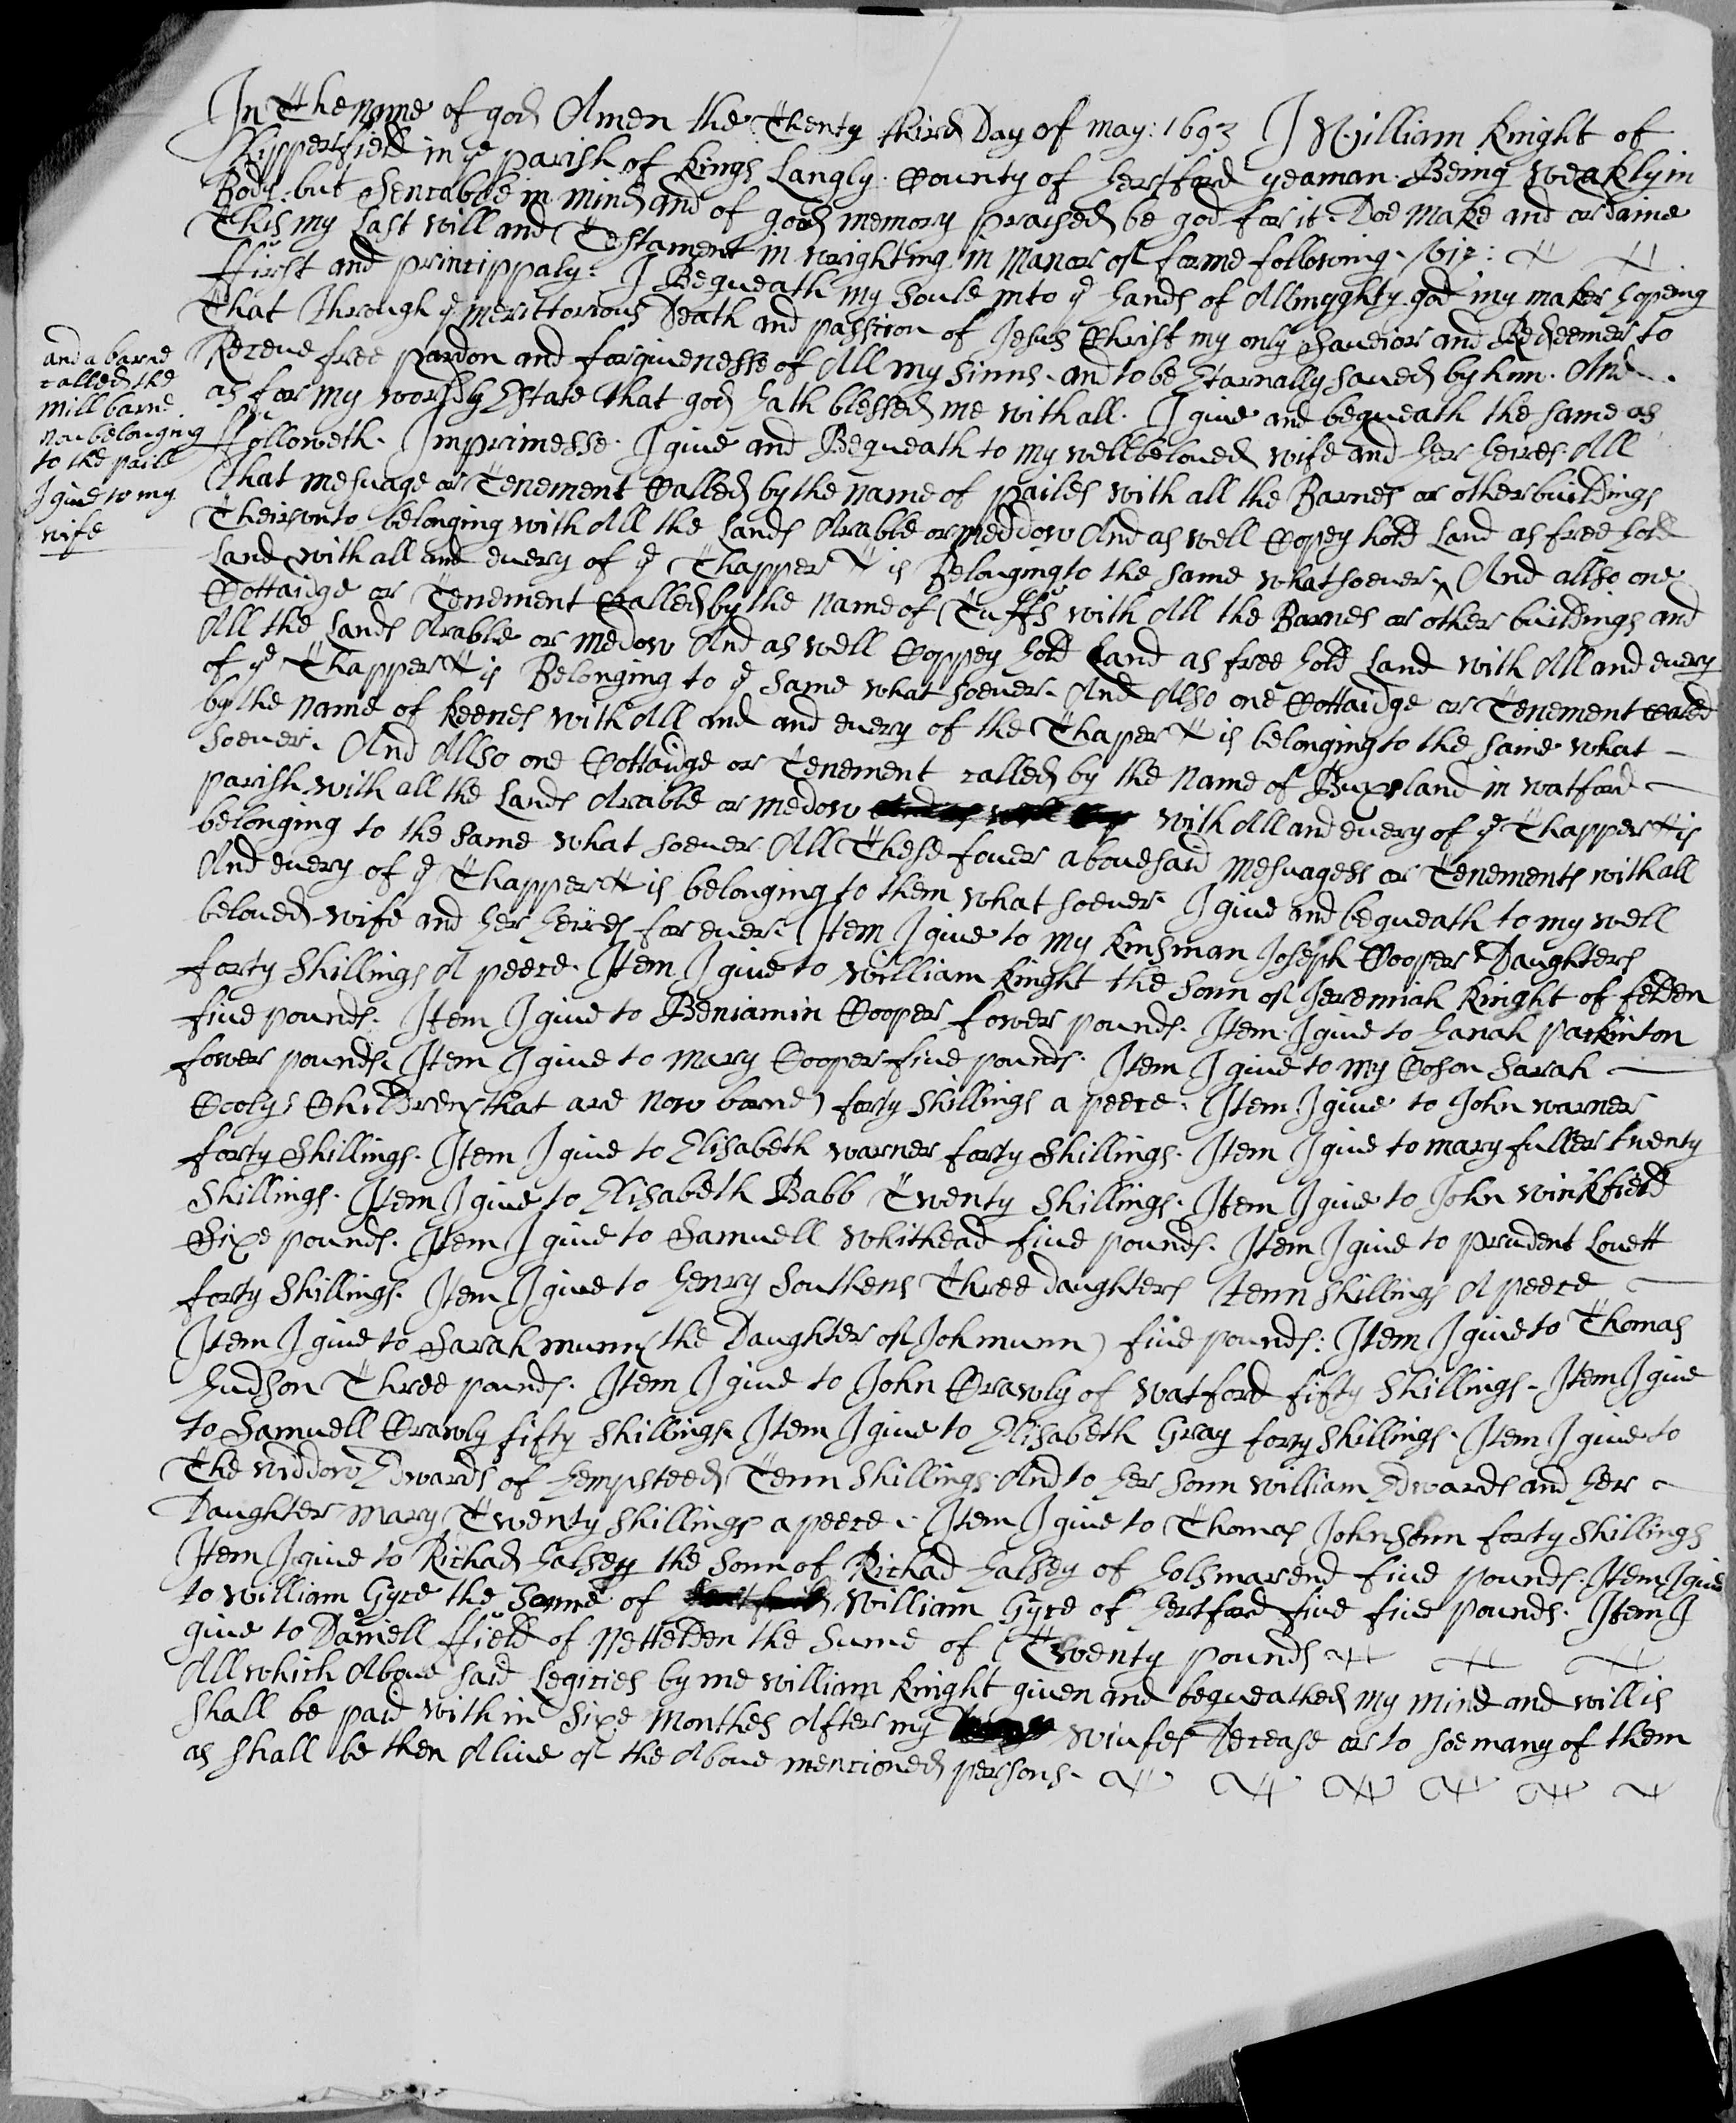 In The name of god Amen the Thenty third Day of may: 1693 I William Knight of
Chipperfield in ye parish of Kings Langly County of hertford yeaman Being Weakly in
Body but Sencable in mind and of good memory praised be god for it Doe make and ordaine
This my Last will and Testament in wrighting in Manor of forme following viz:
ffirst and princippaly: I Bequeath my Soule into ye hands of Allmyghty god my maker hopeing
That through ye merittorious Death and passion of Jesus Christ my only Saviour and Redeemer to
Receve free pardon and forgivenesse of All my Sinns and to be Etarnally saved by him And
as for my worldly Estate that god hath blessed me with all I give and bequeath the same as
ffolloweth Imprimesse I give and Bequeath to my well beloved wife and her heires All
that mesuage or Tenement Called by the name of pailes with all the Barnes or other buildings
Theirunto belonging with All the Lands Arable or meddow And as well Copey hold Land as free hold
Land with all and every of ye Thapper tis Belonging to the same whatsoever ^ And allso one
Cottaidge or Tenement Called by the name of Tuffs with All the Barnes or other buildings and
All the Lands Arable or medow And as well Coppey hold Land as free hold Land with All and every
of ye Thapper tis Belonging to ye same what soever And Also one Cottaidge or Tenement caled
by the name of Keenes with All and and every of the Thaper tis belonging to the same what
soever And Allso one Cottaidge or Tenement called by the name of Buxsland in watford
parish with all the Lands Arable or medow with All and every of ye Thapper tis
belonging to the same what soever All These fouer abovesaid mesuagess or Tenements with all
And every of ye Thapper tis belonging to them what soever I give and bequeath to my well
beloved wife and her heires for ever Item I give to my Kinsman Joseph Coopers Daughters
forty shillings A peece Item I give to William Knight the Sonn of Jeremiah Knight of felden
five pounds Item I give to Beniamin Cooper fower pounds Item I give to hanah parkinton
fower pounds Item I give to mary Cooper five pounds Item I give to my Coson Sarah
Coolys Children (that are now borne) forty shillings a peece Item I give to John warner
forty Shillings Item I give to Elisabeth warner forty Shillings Item I give to mary fuller twenty
Shillings Item I give to Elisabeth Babb Twenty Shillings Item I give to John winkfield
Sixe pounds Item I give to Samuell Whithead five pounds Item I give to prudent Lovett
forty Shillings Item I give to henry Southens Three daughters Tenn Shillings A peece
Item I give to Sarah munn (the Daughter of Joh munn) five pounds: Item I give to Thomas
hudson Three pounds Item I give to John Crawly of watford fifty Shillings Item I give
to Samuell Crawly fifty Shillings Item I give to Elisabeth Gray forty Shillings Item I give to
The widdow Edwards of hempsteed Tenn Shillings And to her Sonn William Edwards and her
Daughter mary Twenty Shillings a peece Item I give to Thomas Johnson forty Shillings
Item I give to Richad halsey the Sonn of Richad halsey of holsmarend five pounds Item I give
to William Gyre the Sonne of William Gyre of hertford five five pounds Item I
give to Daniell ffield of pettelden the Sume of Twenty pounds
All which Above said Legicies by me William Knight given and bequeathed my mind and will is
Shall be paid with in Sixe Monthes After my wiufes Decease or to soe many of them
as shall be then Alive of the Above mencioned persons
and a barne
called the
mill barne
now belonging
to the paile
I give to my
wife